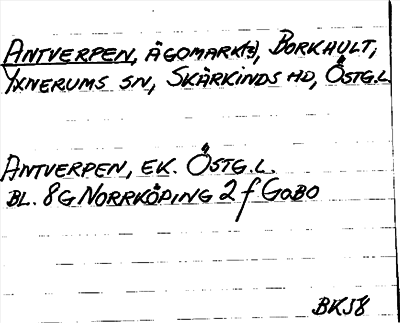 ANTVERPEN, ÄGOMARK(s), BORKHULT,
YXNERUMS SN, SKÄRKINDS HD, ÖSTG.L
ANTVERPEN, EK. ÖSTG.L.
BL. 8G NORRKÖPING 2 f GOBO
BK58